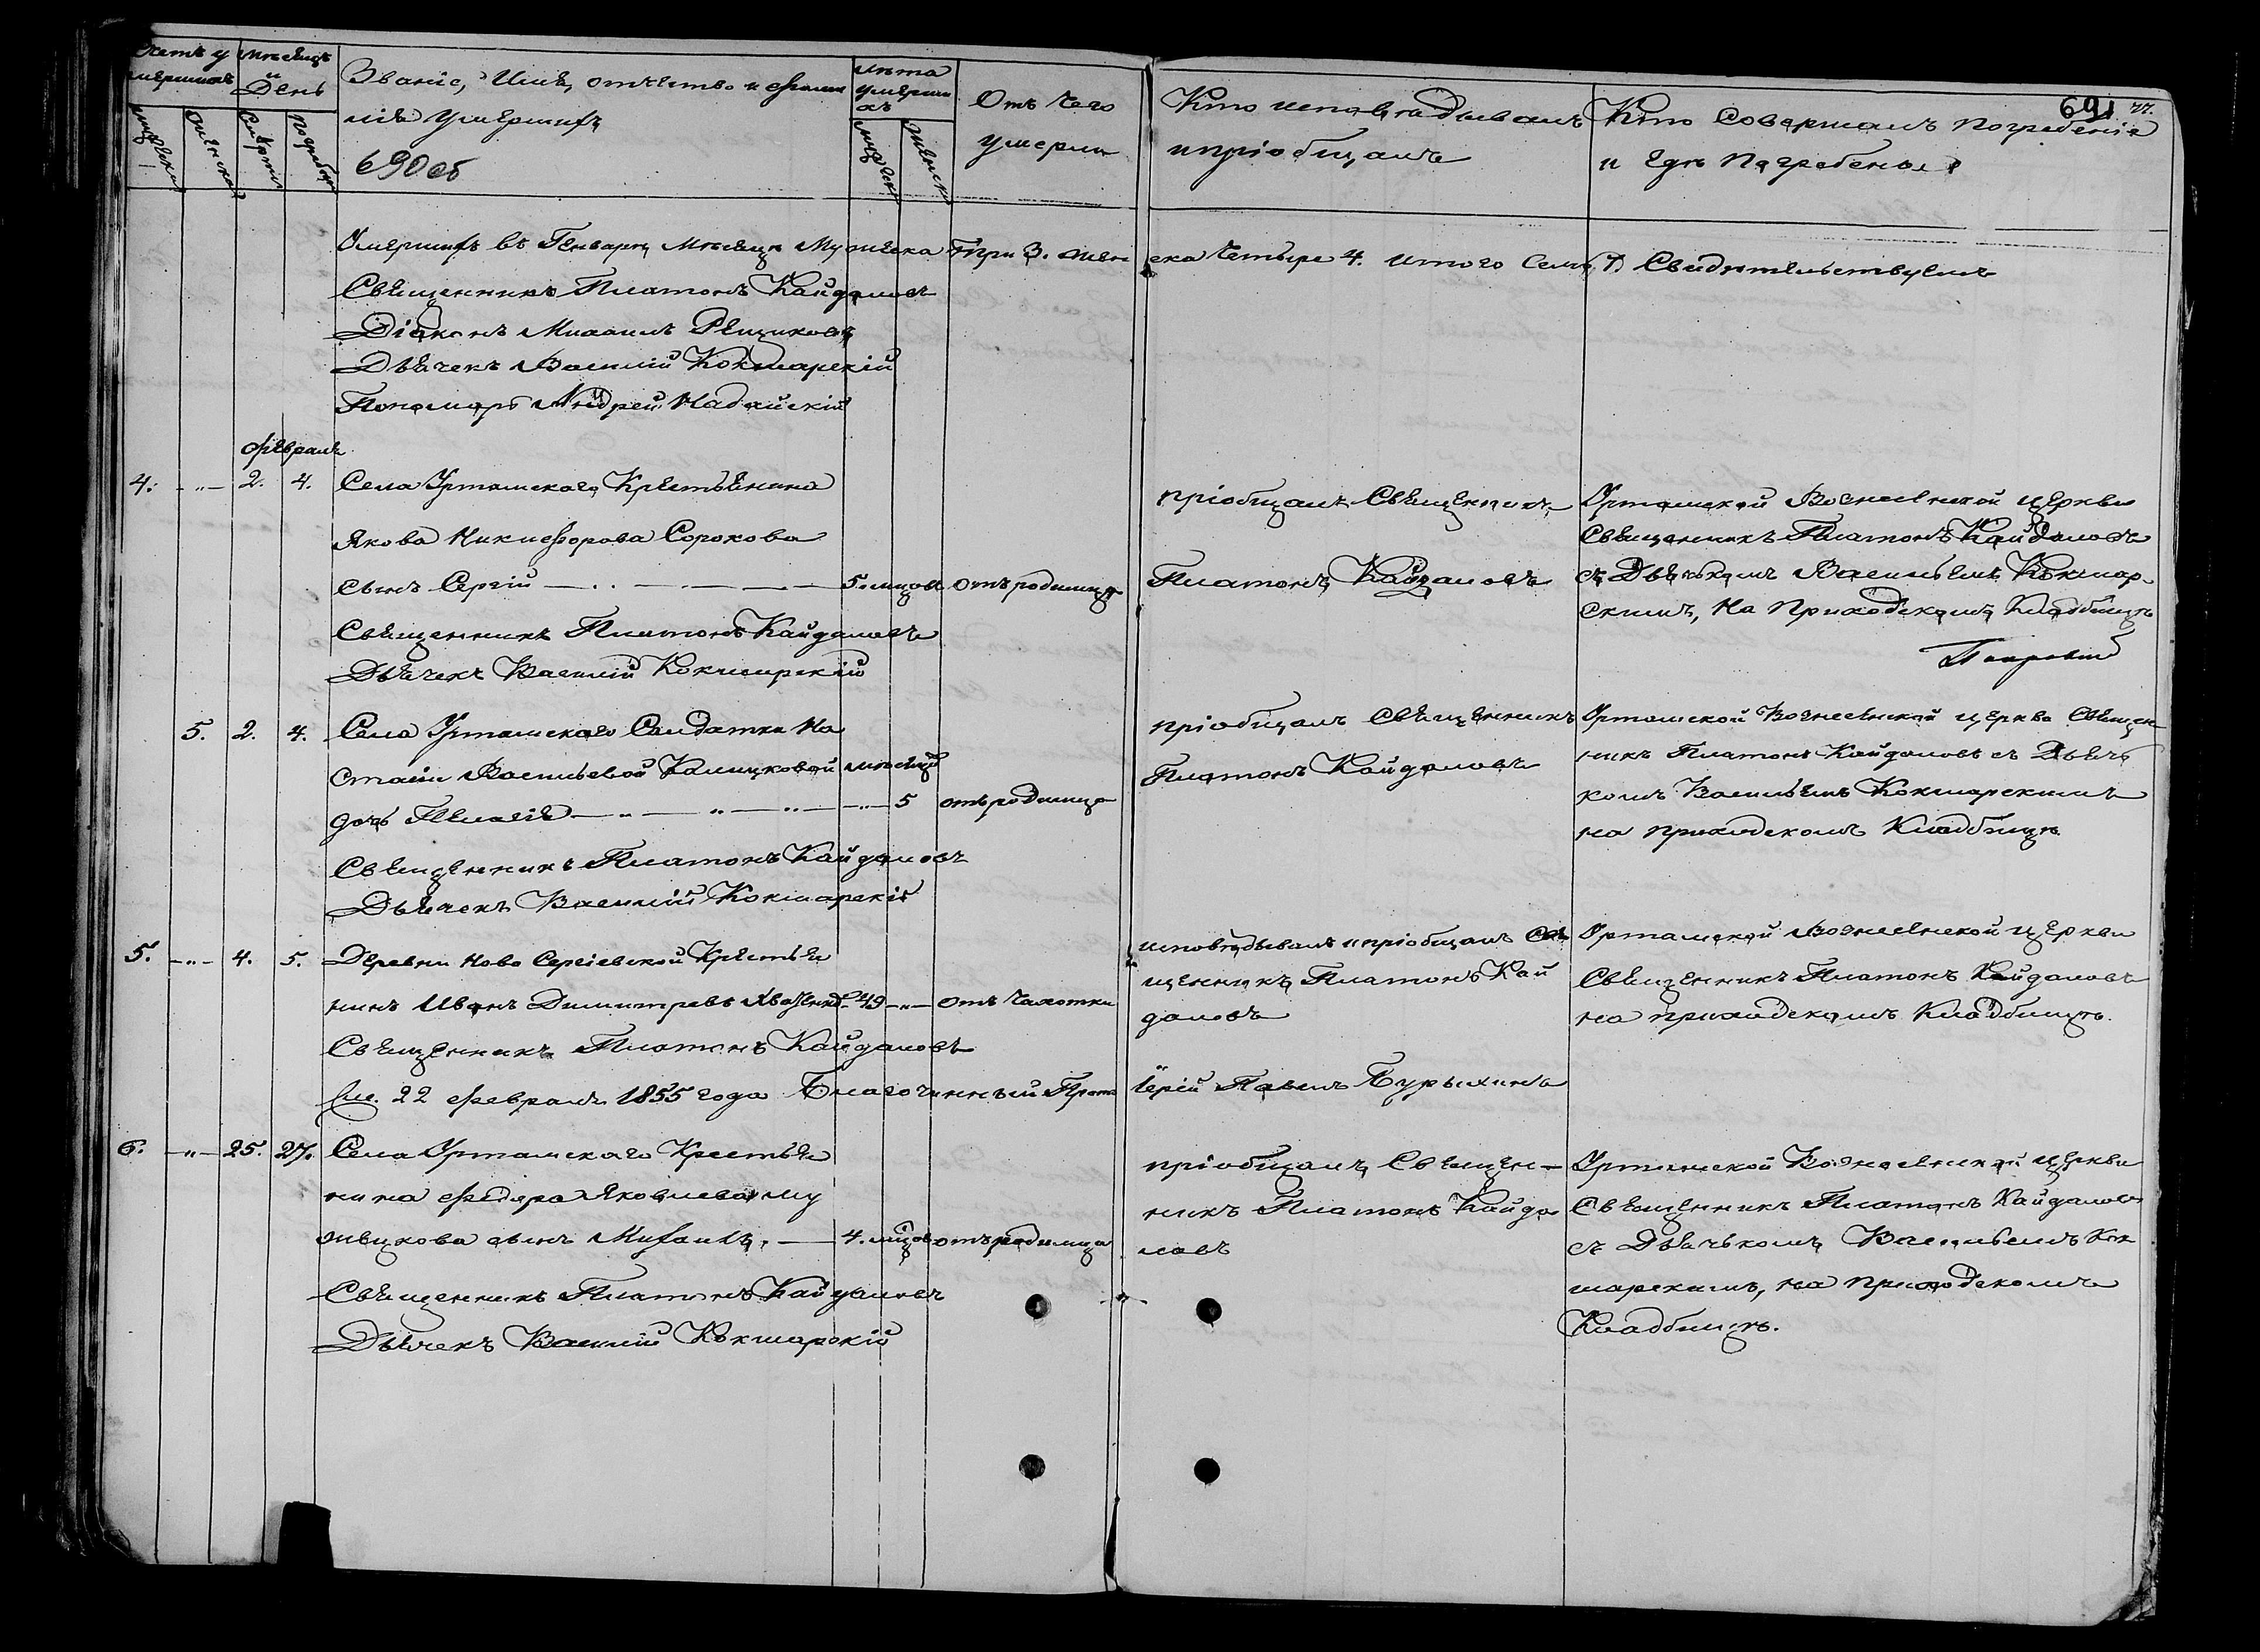 Счетъ умершихъ
Мѣсяцъ и День
Званіе, Имя, отчество и фамилія Умершихъ
лѣта умершихъ
Отъ чего умерли
Кто исповѣдывалъ и пріобщалъ
Кто Совершалъ погребеніе и гдѣ Погребены
мужеска
женска
Смерти
Погребен
мужеск
женск
690об
691
77.
Умершихъ въ Генварѣ Мѣсяцѣ Мужеска Три 3. женска Четыре 4. итого Семь 7) Свидѣтельствуемъ
Священникъ Платонъ Кайдаловъ
Діаконъ Михаилъ
Дьячекъ Василій Кокшарскій
Пономарь Андрей
Февраль
4. -„- 2. 4. Села Урташскаго Крестьянина
Якова Никифорова Сорокова
сынъ Сергій — 5. мцовъ отъ родимца
Священникъ Платонъ Кайдаловъ
Дьячекъ Василій Кокшарскій
пріобщалъ Священникъ
Платонъ Кайдаловъ
Урташской Вознесенской церкви
Священникъ Платонъ Кайдаловъ
съ Дьячкомъ Васильемъ Кокшар-
скимъ, На Приходскомъ Кладбищѣ
5. 2. 4. Села Урташскаго Солдатки На
стасіи Васильевой Калицковой мѣсяц
дочь Пелагія -„-„- -„- 5 отъ родимца
Священникъ Платонъ Кайдаловъ
Дьячекъ Василій Кокшарскій
пріобщалъ Священникъ
Платонъ Кайдаловъ
Урташской Вознесенской церкви Священ-
никъ Платонъ Кайдаловъ съ Дьяч
комъ Васильемъ Кокшарскимъ
на приходскомъ Кладбищѣ
5. -„- 4. 5. Деревни Ново Сергіевской Крестья
нинъ Иванъ Димитріевъ 49 -„- отъ Чахотки
Священникъ Платонъ Кайдаловъ
исповѣдывалъ и пріобщалъ Свя
щенникъ Платонъ Кай
даловъ
Урташской Вознесенской церкви
Священникъ Платонъ Кайдаловъ
на приходскомъ Кладбищѣ.
См. 22 февраля 1855 года Благочинный Прото
іерей Павелъ
6. -„- 25. 27. Села Урташскаго Крестья
нина Федора Яковлева Му
жецкова сынъ Михаилъ. — 4. мцовъ отъ родимца
Священникъ Платонъ Кайдаловъ
Дьячекъ Василій Кокшарскій
пріобщалъ Священ-
никъ Платонъ Кайда
ловъ
Урташской Вознесенской церкви
Священникъ Платонъ Кайдаловъ
съ Дьячькомъ Васильемъ Кок
шарскимъ, на приходскомъ
Кладбищѣ.